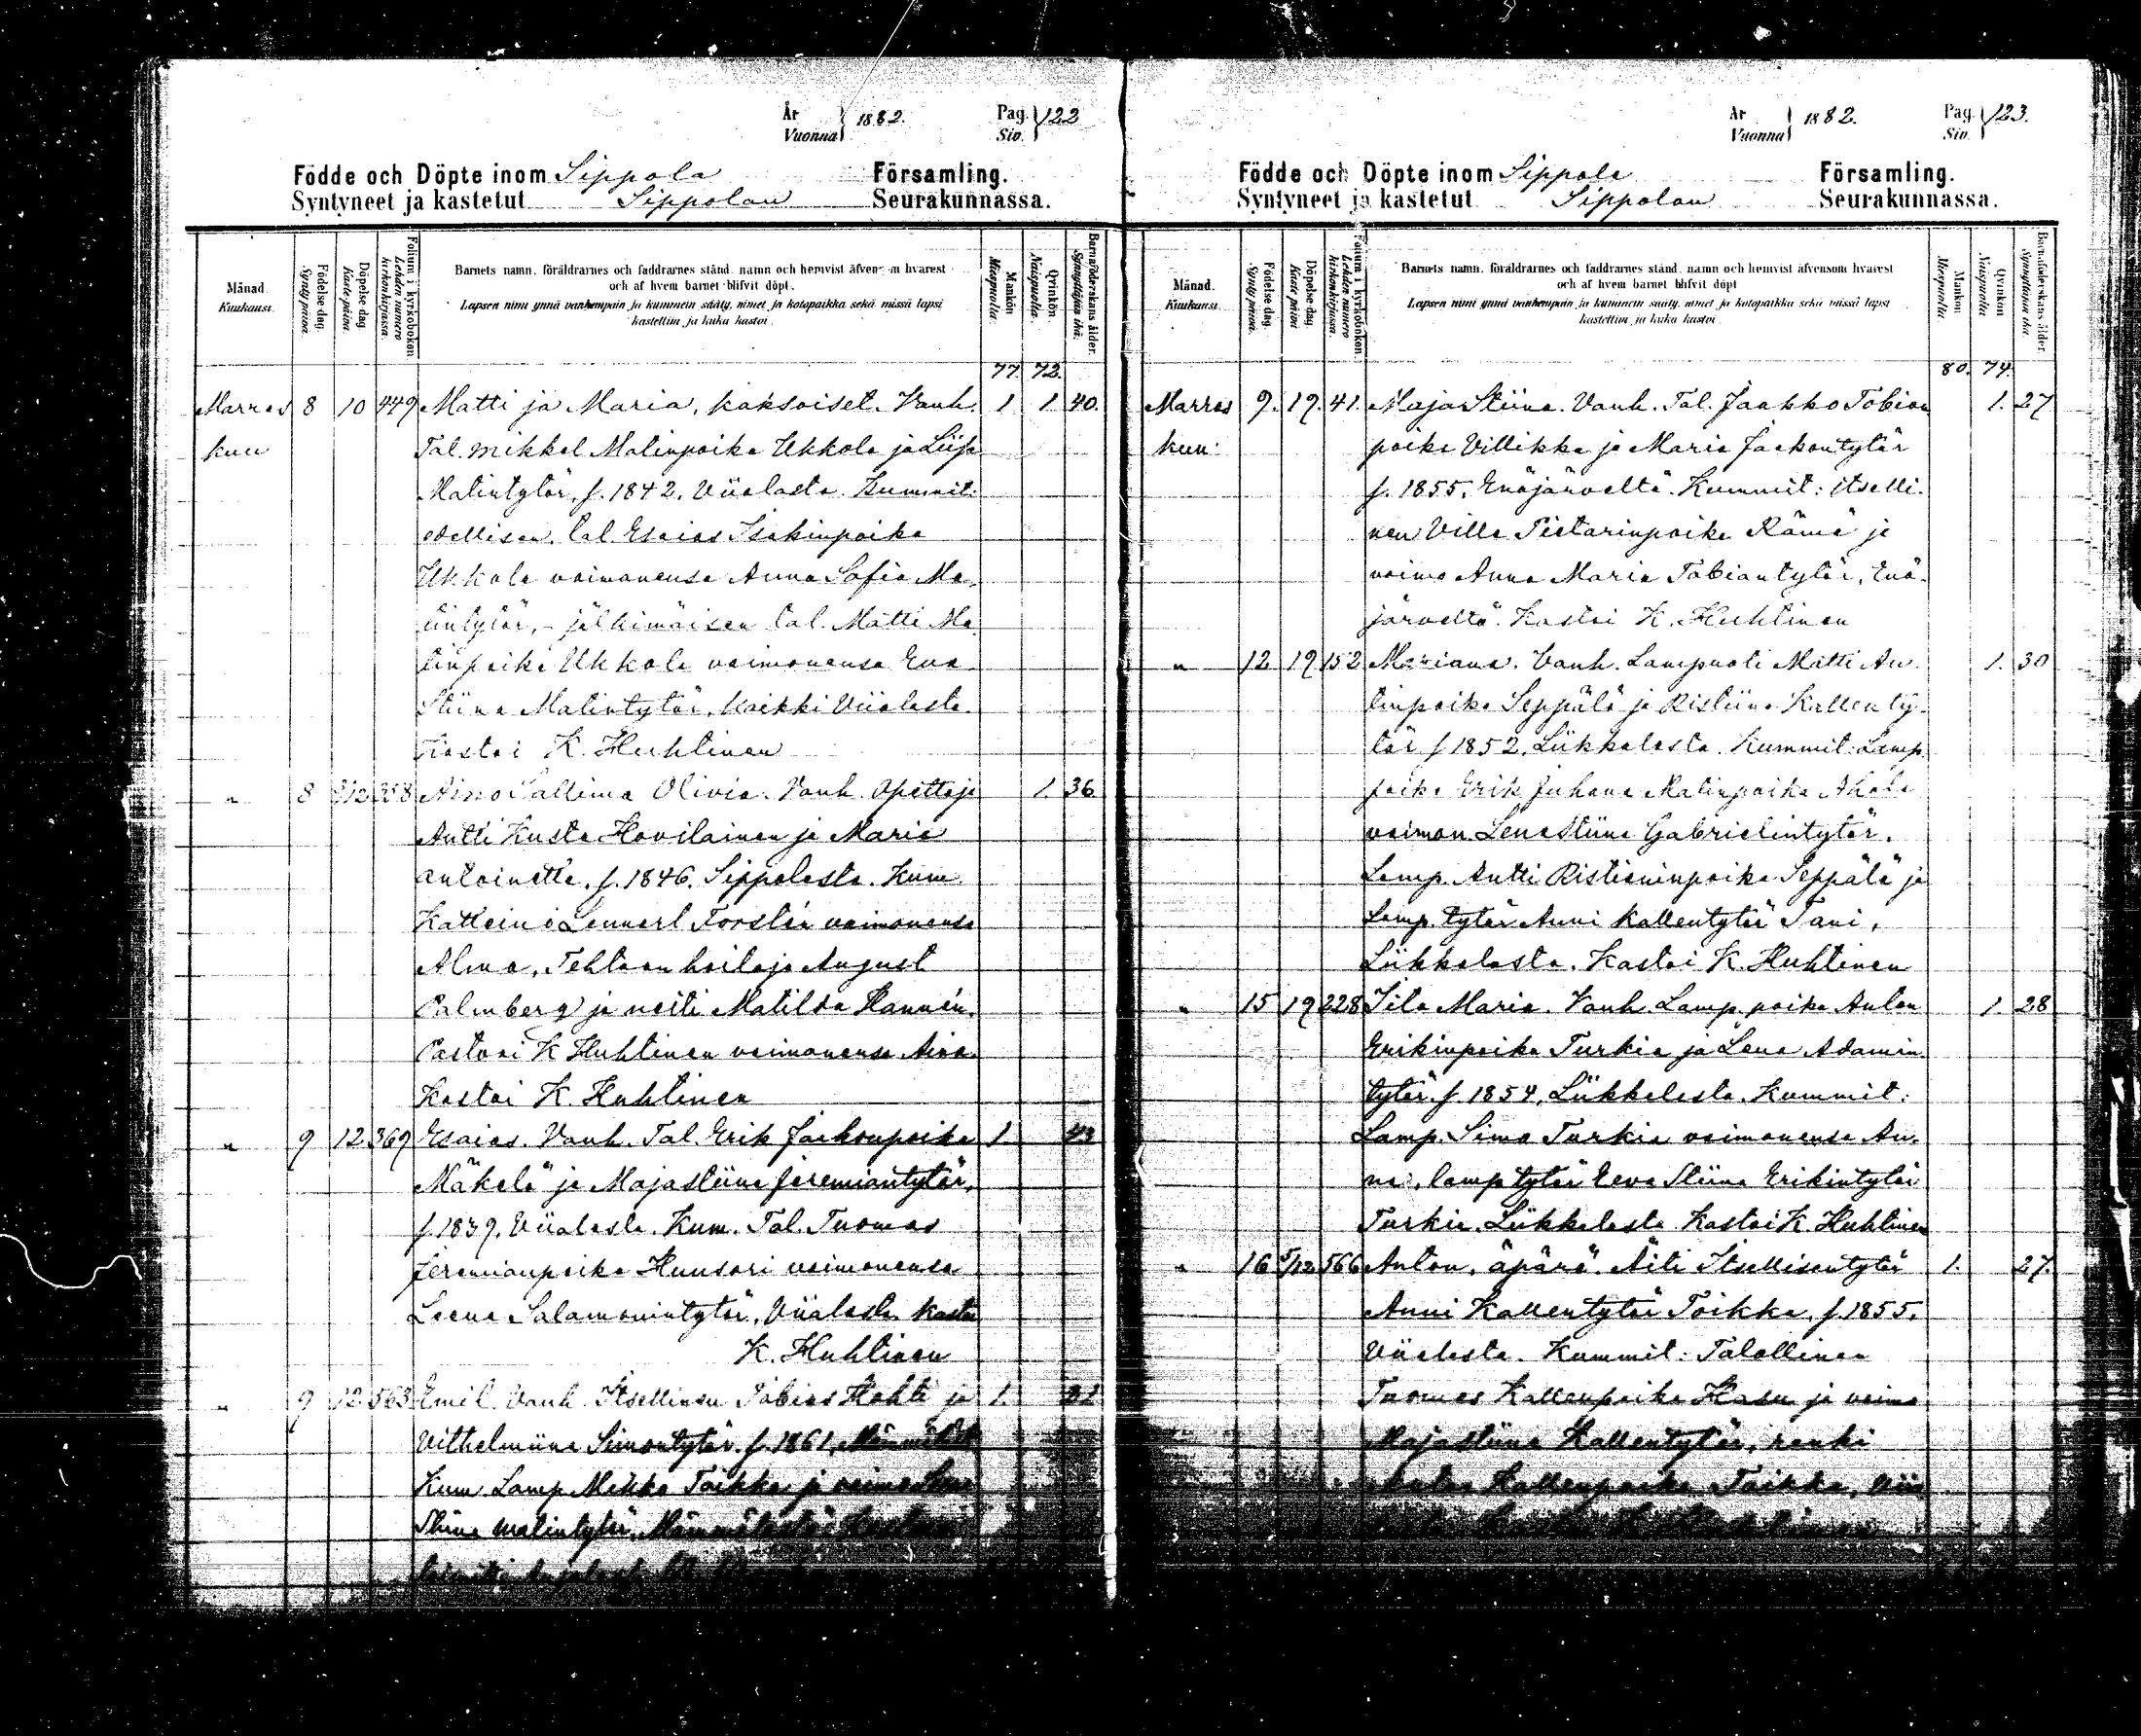 År Vuonna 1882. Pag. Siv. 122
Födde och Döpte inom Sippola Församling.
Syntyneet ja kastetut Sippolan Seurakunnassa.
Månad. Kuukausi.
Födelse dag. Synty päivä.
Döpelse dag. Kaste päivä.
Folium i kyrkoboken. Lehden numero kirkonkirjassa.
Barnets namn, föräldrarnes och faddrarnes stånd, namn och hemvist äfvensom hvarest
och af hvem barnet blifvit döpt.
Lapsen nimi ynnä vanhempain ja kummein sääty, nimet ja kotopaikka sekä missä lapsi
kastettiin ja kuka kastoi.
Mankön. Miespuolia.
Qvinkön. Naispuolia.
Barnaföderskans ålder. Synnyttäjän ikä.
77. 72.
Marras 8 10 449 Matti ja Maria, kaksoiset. Vanh. 1 1 40.
kuu Tal. Mikkel Matinpoika Ukkola ja Liisa
Matintytär, s. 1842. Viialasta. Kummit:
edellisen, tal. Esaias Isakinpoika
Ukkola vaimonensa Anna Sofia Ma-
tintytär, - jälkimäisen tal. Matti Ma-
tinpoika Ukkola vaimonensa Eva
Stiina Matintytär, kaikki Viialasta.
Kastoi K. Huhtinen
" 8 358 Aino Olivia. Vanh. Opettaja 1. 36
Antti Kusta Hovilainen ja Maria
Antoinette, s. 1846. Sippolasta. Kum.
Lennart Forstén vaimonensa
Alma, Tehtaan hoitaja August
Palmberg ja neiti Matilda Hannén.
Pastori K Huhtinen vaimonensa Aina.
Kastoi K. Huhtinen
" 9 12 369 Esaias. Vanh. Tal. Erik Jaakonpoika 1 43
Mäkelä ja Majastiina Jeremiantytär,
s. 1839. Viialasta. Kum. Tal. Tuomas
Jeremianpoika Huusari vaimonensa
Leena Salamonintytär, Viialasta. Kastoi
K. Huhtinen
" 9 12 563 Emil. Vanh. Itsellinen Tobias Hahti ja 1. 21
Vilhelmiina Simontytär s. 1861,
Kum. Lamp. Mikko Toikka ja
Stiina Matintytär,
År Vuonna 1882. Pag. Siv. 123.
Födde och Döpte inom Sippola Församling.
Syntyneet ja kastetut Sippolan Seurakunnassa.
Månad. Kuukausi.
Födelse dag. Synty päivä.
Döpelse dag. Kaste päivä.
Folium i kyrkoboken. Lehden numero kirkonkirjassa.
Barnets namn, föräldrarnes och faddrarnes stånd, namn och hemvist äfvensom hvarest
och af hvem barnet blifvit döpt
Lapsen nimi ynnä vanhempain ja kummein sääty, nimet ja kotopaikka sekä missä lapsi
kastettiin ja kuka kastoi.
Mankön. Miespuolia.
Qvinkön. Naispuolia.
Barnaföderskans ålder. Synnyttäjän ikä.
80. 74.
Marras 9. 19. 41. Maja Stiina. Vanh. Tal. Jaakko Tobian 1. 27
kuu: poika Villikka ja Maria Jaakontytär
s. 1855, Enäjärveltä. Kummit: itselli-
nen Ville Pietarinpoika Rämä ja
vaimo Anna Maria Tobiantytär, Enä-
järveltä. Kastoi K. Huhtinen
" 12 19 152 Mariana. Vanh. Lampuoti Matti An- 1. 30
tinpoika Seppälä ja Ristiina Kallenty-
tär s 1852, Liikkalasta. Kummit: Lamp.
poika Erik Juhana Matinpoika Ahola
vaimon. Lena Stiina Gabrielintytär,
Lamp. Antti Ristianinpoika Seppälä ja
Lamp. tytär Anni Kallentytär Tani,
Liikkalasta. Kastoi K. Huhtinen
" 15 19 228 Iita Maria. Vanh. Lamp. poika Anton 1. 28
Erikinpoika Turkia ja Lena Adamin-
tytär s. 1854, Liikkalasta. Kummit:
Lamp. Simo Turkia vaimonensa An-
na, lamp tytär Eeva Stiina Erikintytär
Turkia. Liikkalasta. Kastoi K. Huhtinen
" 16 5/12 566 Anton, äpärä. Äiti Itsellisentytär 1. 27.
Anni Kallentytär Toikka, s. 1855.
Viialasta. Kummit: Talollinen
Tuomas Kallenpoika Hasu ja vaimo
Majastiina Kallentytär, renki
Kallenpoika Toikka,